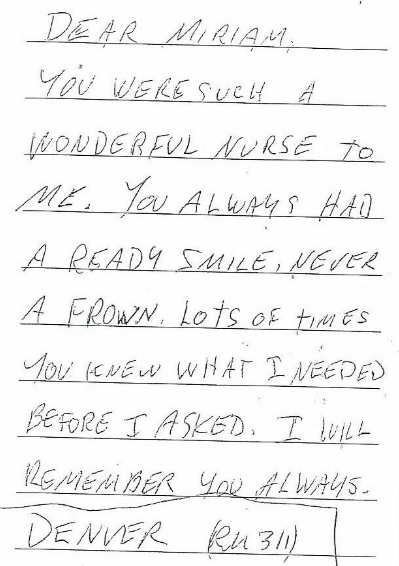 DEAR MIRIAM.
YOU WERE SUCH A
WONDERFUL NURSE TO
ME. YOU ALWAYS HAD
A READY SMILE, NEVER
A FROWN. LOTS OF tIMES
YOU KNEW WHAT I NEEDED
BEFORE I ASKED. I WILL
REMEMBER YOU ALWAYS.
DENVER (RM 311)